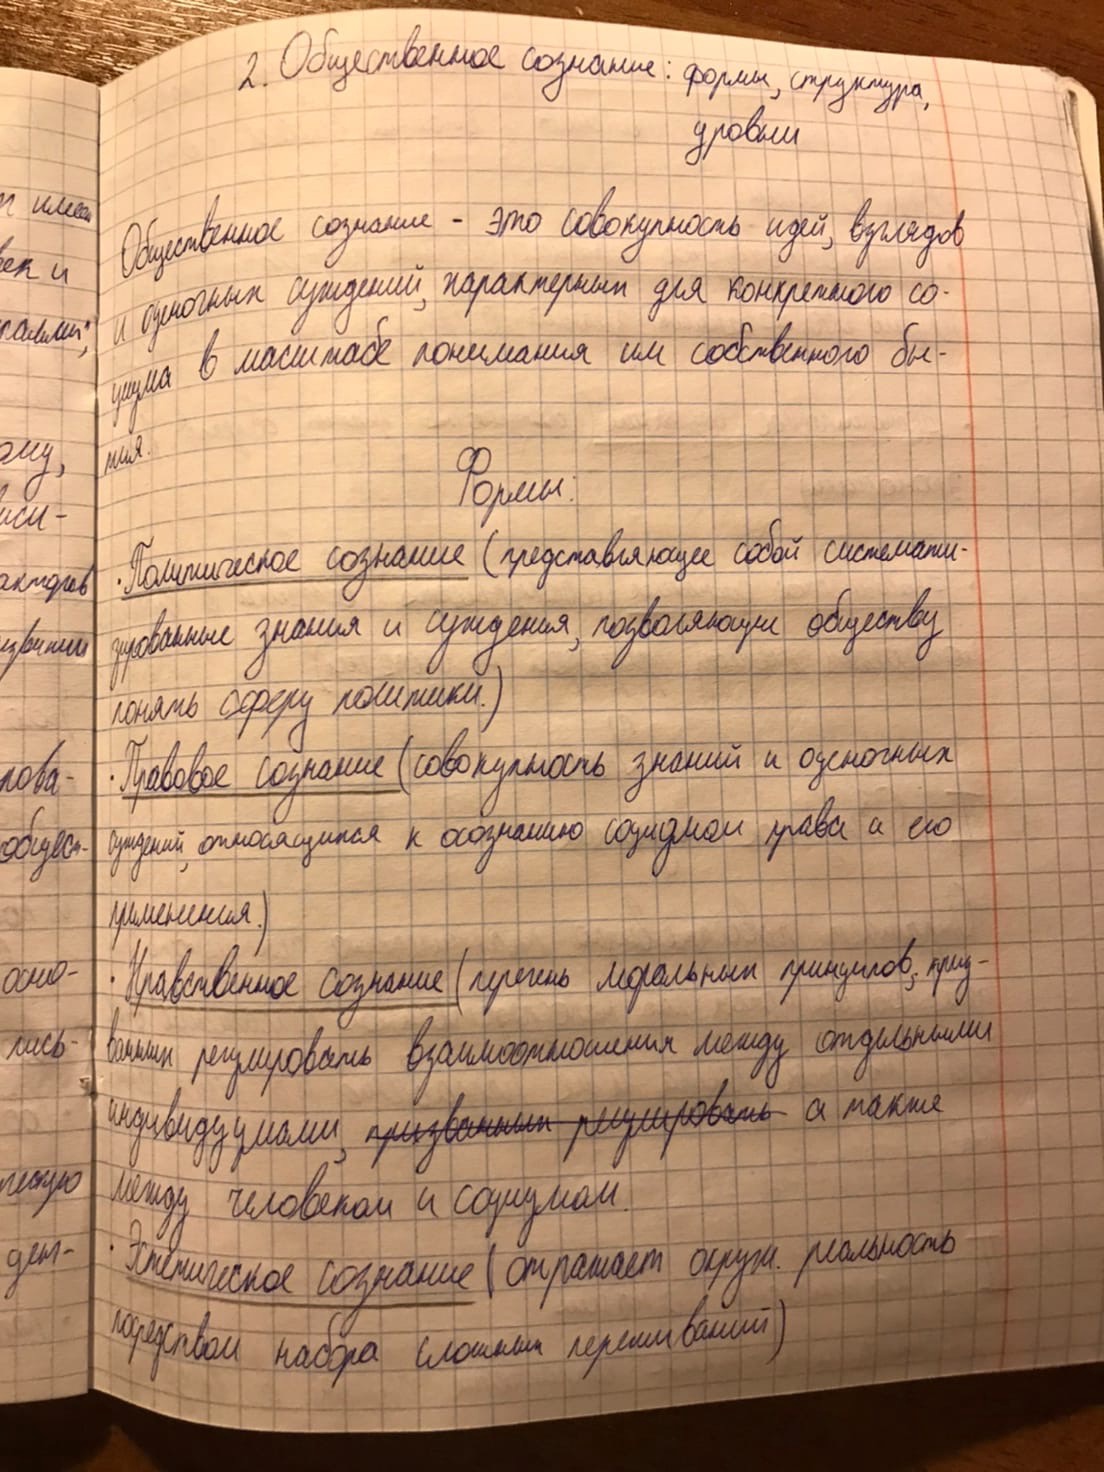 2. Общественное сознание: формы, структура,
уровни
Общественное сознание - это совокупность идей, взглядов
и оценочных суждений, характерных для конкретного со-
циума в масштабе понимания им собственного бы-
тия.
Формы:
· Политическое сознание (представляющее собой системати-
зированные знания и суждения, позволяющие обществу
понять сферу политики.)
· Правовое сознание (совокупность знаний и оценочных
суждений, относящихся к осознанию социумом права и его
применения.)
· Нравственное сознание (перечень моральных принципов, приз-
ванных регулировать взаимоотношения между отдельными
индивидуумами, призванных регулировать а также
между человеком и социумом.
· Эстетическое сознание (отражает окруж. реальность
посредством набора сложных переживаний)
т имеют
век и
ому,
иси-
акторов
лова-
общест-
осно-
лись-
дея-